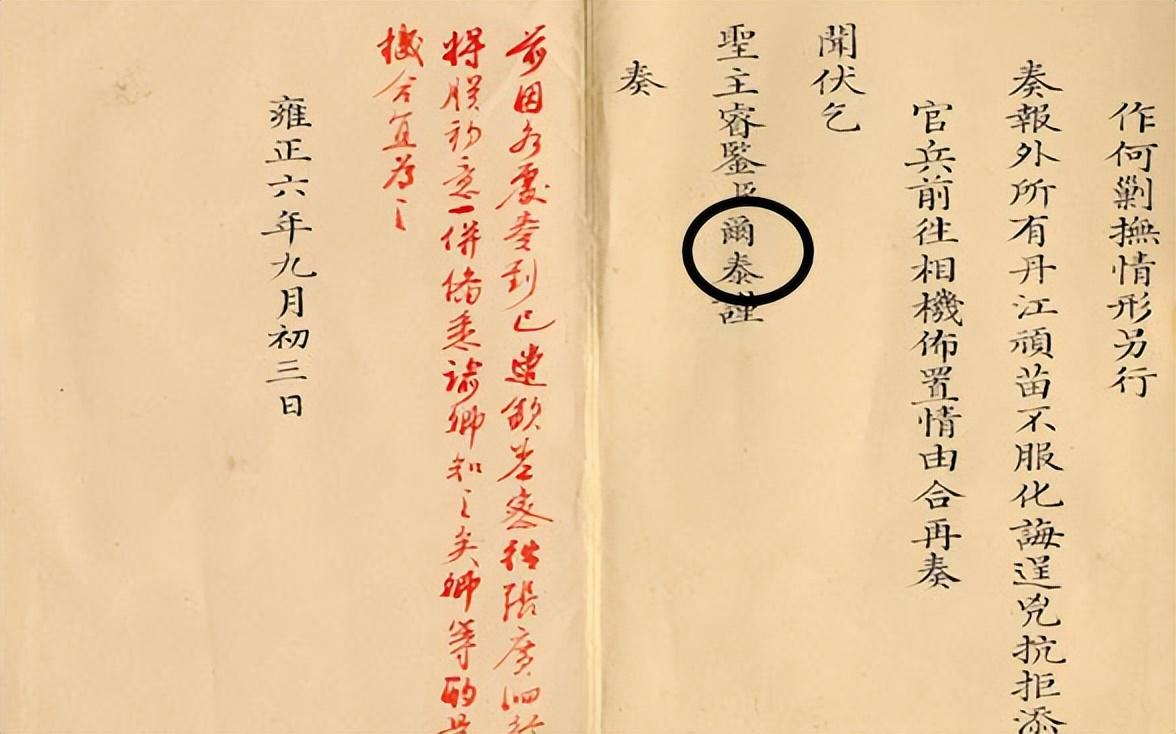 作何剿撫情形另行
奏報外所有丹江頑苗不服化誨逞兇抗拒添
官兵前往相機佈置情由合再奏
聞伏乞
聖主睿鑒臣爾泰謹
奏
前因各處奏到已遣欽差密往張廣泗
將朕初意一併備悉諭卿知之矣卿等酌量
機合宜為之
雍正六年九月初三日